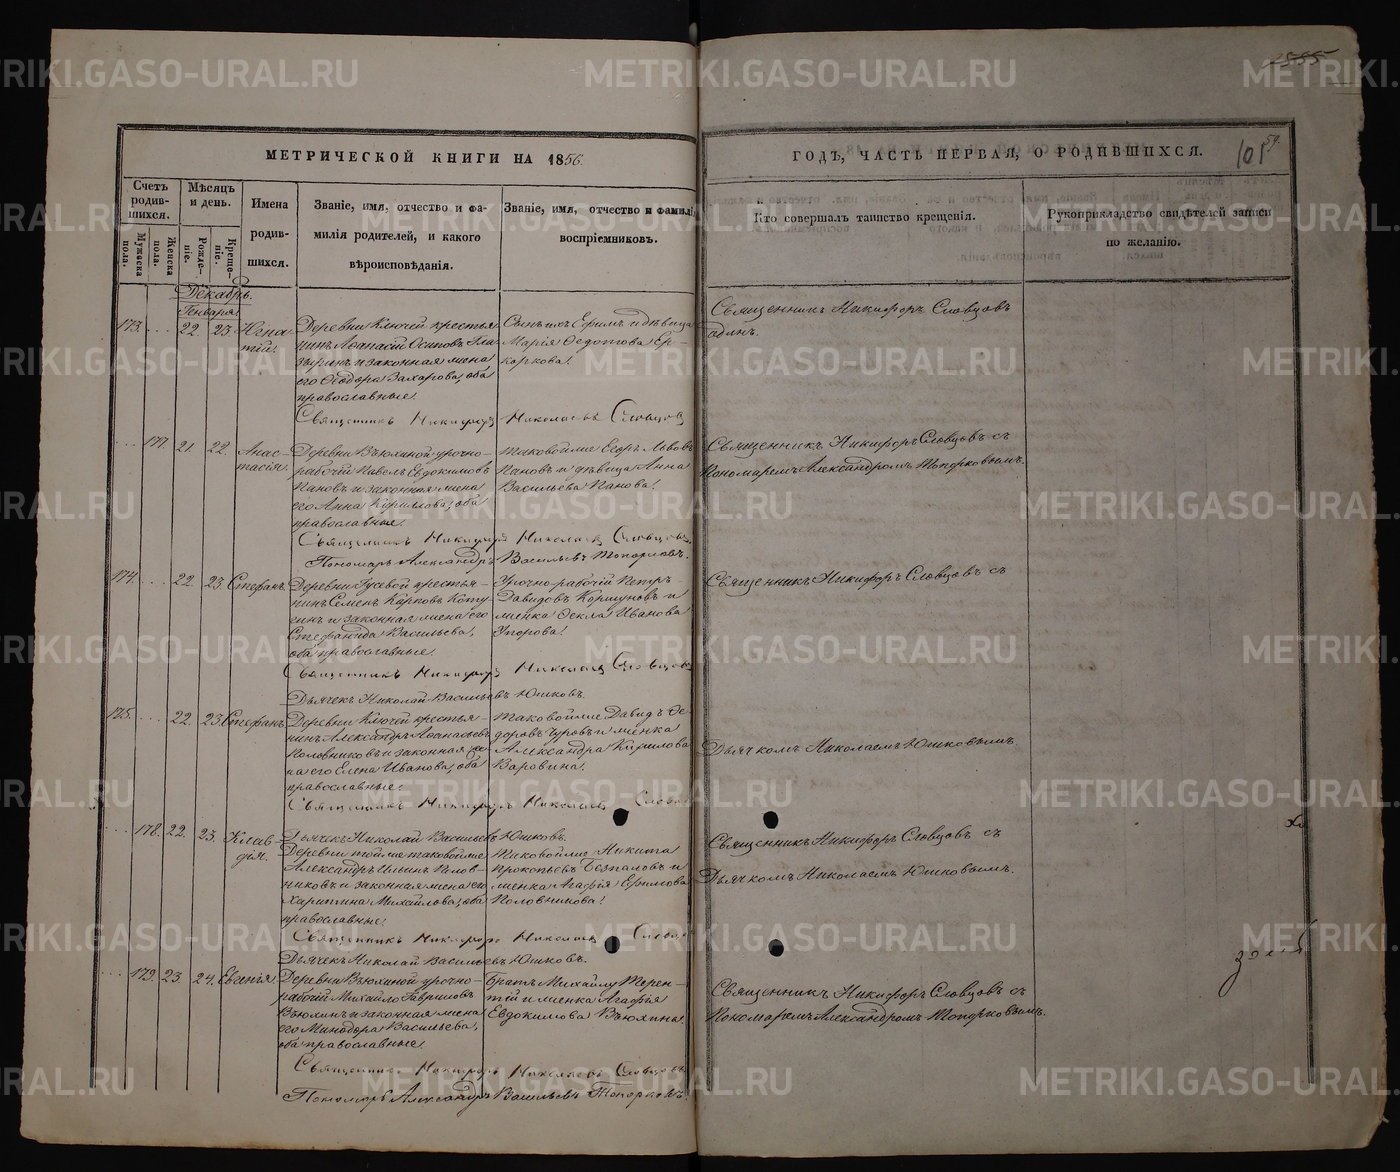 2855
МЕТРИЧЕСКОЙ КНИГИ НА 1856.
ГОДЪ, ЧАСТЬ ПЕРВАЯ, О РОДИВШИХСЯ.
101
59.
Счетъ родившихся.
Мужеска пола.
Женска пола.
Мѣсяцъ и день.
Рожденіе.
Крещеніе.
Имена родившихся.
Званіе, имя, отчество и фамилія родителей, и какого вѣроисповѣданія.
Званіе, имя, отчество и фамилія воспріемниковъ.
Кто совершалъ таинство крещенія.
Рукоприкладство свидѣтелей записи по желанію.
Декабрь.
Генваря
173. 22. 23. Игнатій.
Деревни Ключей крестьянинъ Аѳанасій Осиповъ
и законная жена
его Ѳеодора Захарова, оба
православные.
Сынъ ихъ Ефимъ и дѣвица
Марія Ѳедотова
Священникъ Никифоръ Словцовъ
одинъ.
Священникъ Никифоръ Николаевъ Словцовъ
177. 21. 22. Анастасія.
Деревни Вьюхиной урочнорабочій Павелъ Евдокимовъ
Пановъ и законная жена
его Анна Кириллова, оба
православные.
Таковой же Егоръ Львовъ
Пановъ и дѣвица Анна
Васильева Панова.
Священникъ Никифоръ Словцовъ съ
Пономаремъ Александромъ Топорковымъ.
Священникъ Никифоръ Николаевъ Словцовъ
Пономарь Александръ Васильевъ Топорковъ.
174. 22. 23. Стефанъ.
Деревни Гусевой крестьянинъ Семенъ Карповъ
и законная жена его
Стефанида Васильева,
оба православные.
Урочно-рабочій Петръ
Давидовъ Коршуновъ и
женка Ѳекла Иванова
Упорова.
Священникъ Никифоръ Словцовъ съ
Священникъ Никифоръ Николаевъ Словцовъ
Дьячекъ Николай Васильевъ Юшковъ.
175. 22. 23. Стефанъ.
Деревни Ключей крестьянинъ Александръ Аѳанасьевъ
Половниковъ и законная жена его Елена Иванова, оба
православные.
Таковой же Давидъ Ѳедоровъ и женка
Александра Кирилова
Варовина.
Дьячкомъ Николаемъ Юшковымъ.
Священникъ Никифоръ Николаевъ Словцовъ
Дьячекъ Николай Васильевъ Юшковъ.
178. 22. 23. Клавдія.
Деревни той же таковой же
Александръ Ильинъ Половниковъ и законная жена его
Харитина Михайлова, оба
православные.
Таковой же Никита
Прокопьевъ Безпаловъ и
женка Агафія Ефимова
Половникова.
Священникъ Никифоръ Словцовъ съ
Дьячкомъ Николаемъ Юшковымъ.
Священникъ Никифоръ Николаевъ Словцовъ
Дьячекъ Николай Васильевъ Юшковъ.
179. 23. 24. Евгенія.
Деревни Вьюхиной урочнорабочій Михайло Гавриловъ
Вьюхинъ и законная жена
его Минодора Васильева,
оба православные.
Братъ Михайлу Терентій и женка Агафья
Евдокимова Вьюхины.
Священникъ Никифоръ Словцовъ съ
Пономаремъ Александромъ Топорковымъ.
Священникъ Никифоръ Николаевъ Словцовъ
Пономарь Александръ Васильевъ Топорковъ
METRIKI.GASO-URAL.RU